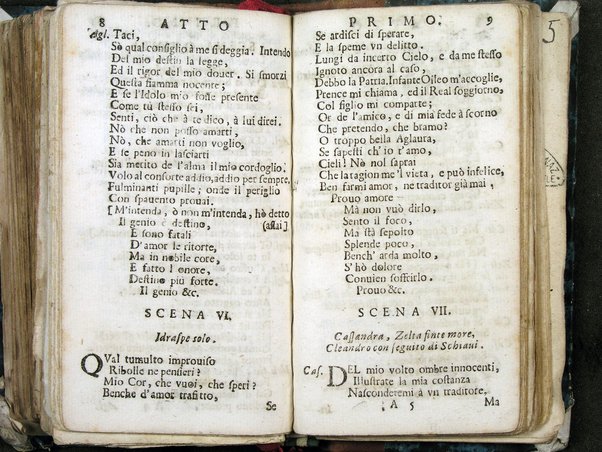 8 ATTO
Agl. Taci,
Sò qual consiglio à me si deggia. Intendo
Del mio destin la legge,
Ed il rigor del mio douer. Si smorzi
Questa fiamma nocente;
E se l'Idolo mio fosse presente
Come tu stesso sei,
Senti, ciò che à te dico, à lui direi.
Nò che non posso amarti,
Nò, che amarti non voglio,
E se peno in lasciarti
Sia merito de l'alma il mio cordoglio.
Volo al consorte addio, addio per sempre
Fulminanti pupille; onde il periglio
Con spauento prouai.
[M'intenda, ò non m'intenda, hò detto
Il genio è destino, (assai]
E sono fatali
D'amor le ritorte,
Ma in nobile core,
E fatto l onore,
Destino più forte.
Il genio &c.
SCENA VI.
Idraspe solo.
QVal tumulto improuiso
Ribolle ne pensieri?
Mio Cor, che vuoi, che speri?
Benche d'amor trafitto,
Se
PRIMO. 9
Se ardisci di sperare,
E la speme vn delitto.
Lungi da incerto Cielo, e da me stesso
Ignoto ancora al caso,
Debbo la Patria. Infante Oileo m'accoglie,
Prence mi chiama, ed il Real soggiorno,
Col figlio mi comparte;
Or de l'amico, e di mia fede à scorno
Che pretendo, che bramo?
O troppo bella Aglaura,
Se sapesti ch'io t'amo,
Cieli! Nò nol saprai
Che la ragion me'l vieta, e può infelice,
Ben farmi amor, ne traditor già mai,
Prouo amore
Mà non vuò dirlo,
Sento il foco,
Ma stà sepolto
Splende poco,
Bench' arda molto,
S' hò dolore
Conuien soffrirlo.
Prouo &c.
SCENA VII.
Cassandra, Zelta finte more,
Cleandro con seguito di Schiaui.
Cas. DEL mio volto ombre innocenti,
Illustrate la mia costanza
Nasconderemi à vn traditore,
A 5 Ma
5